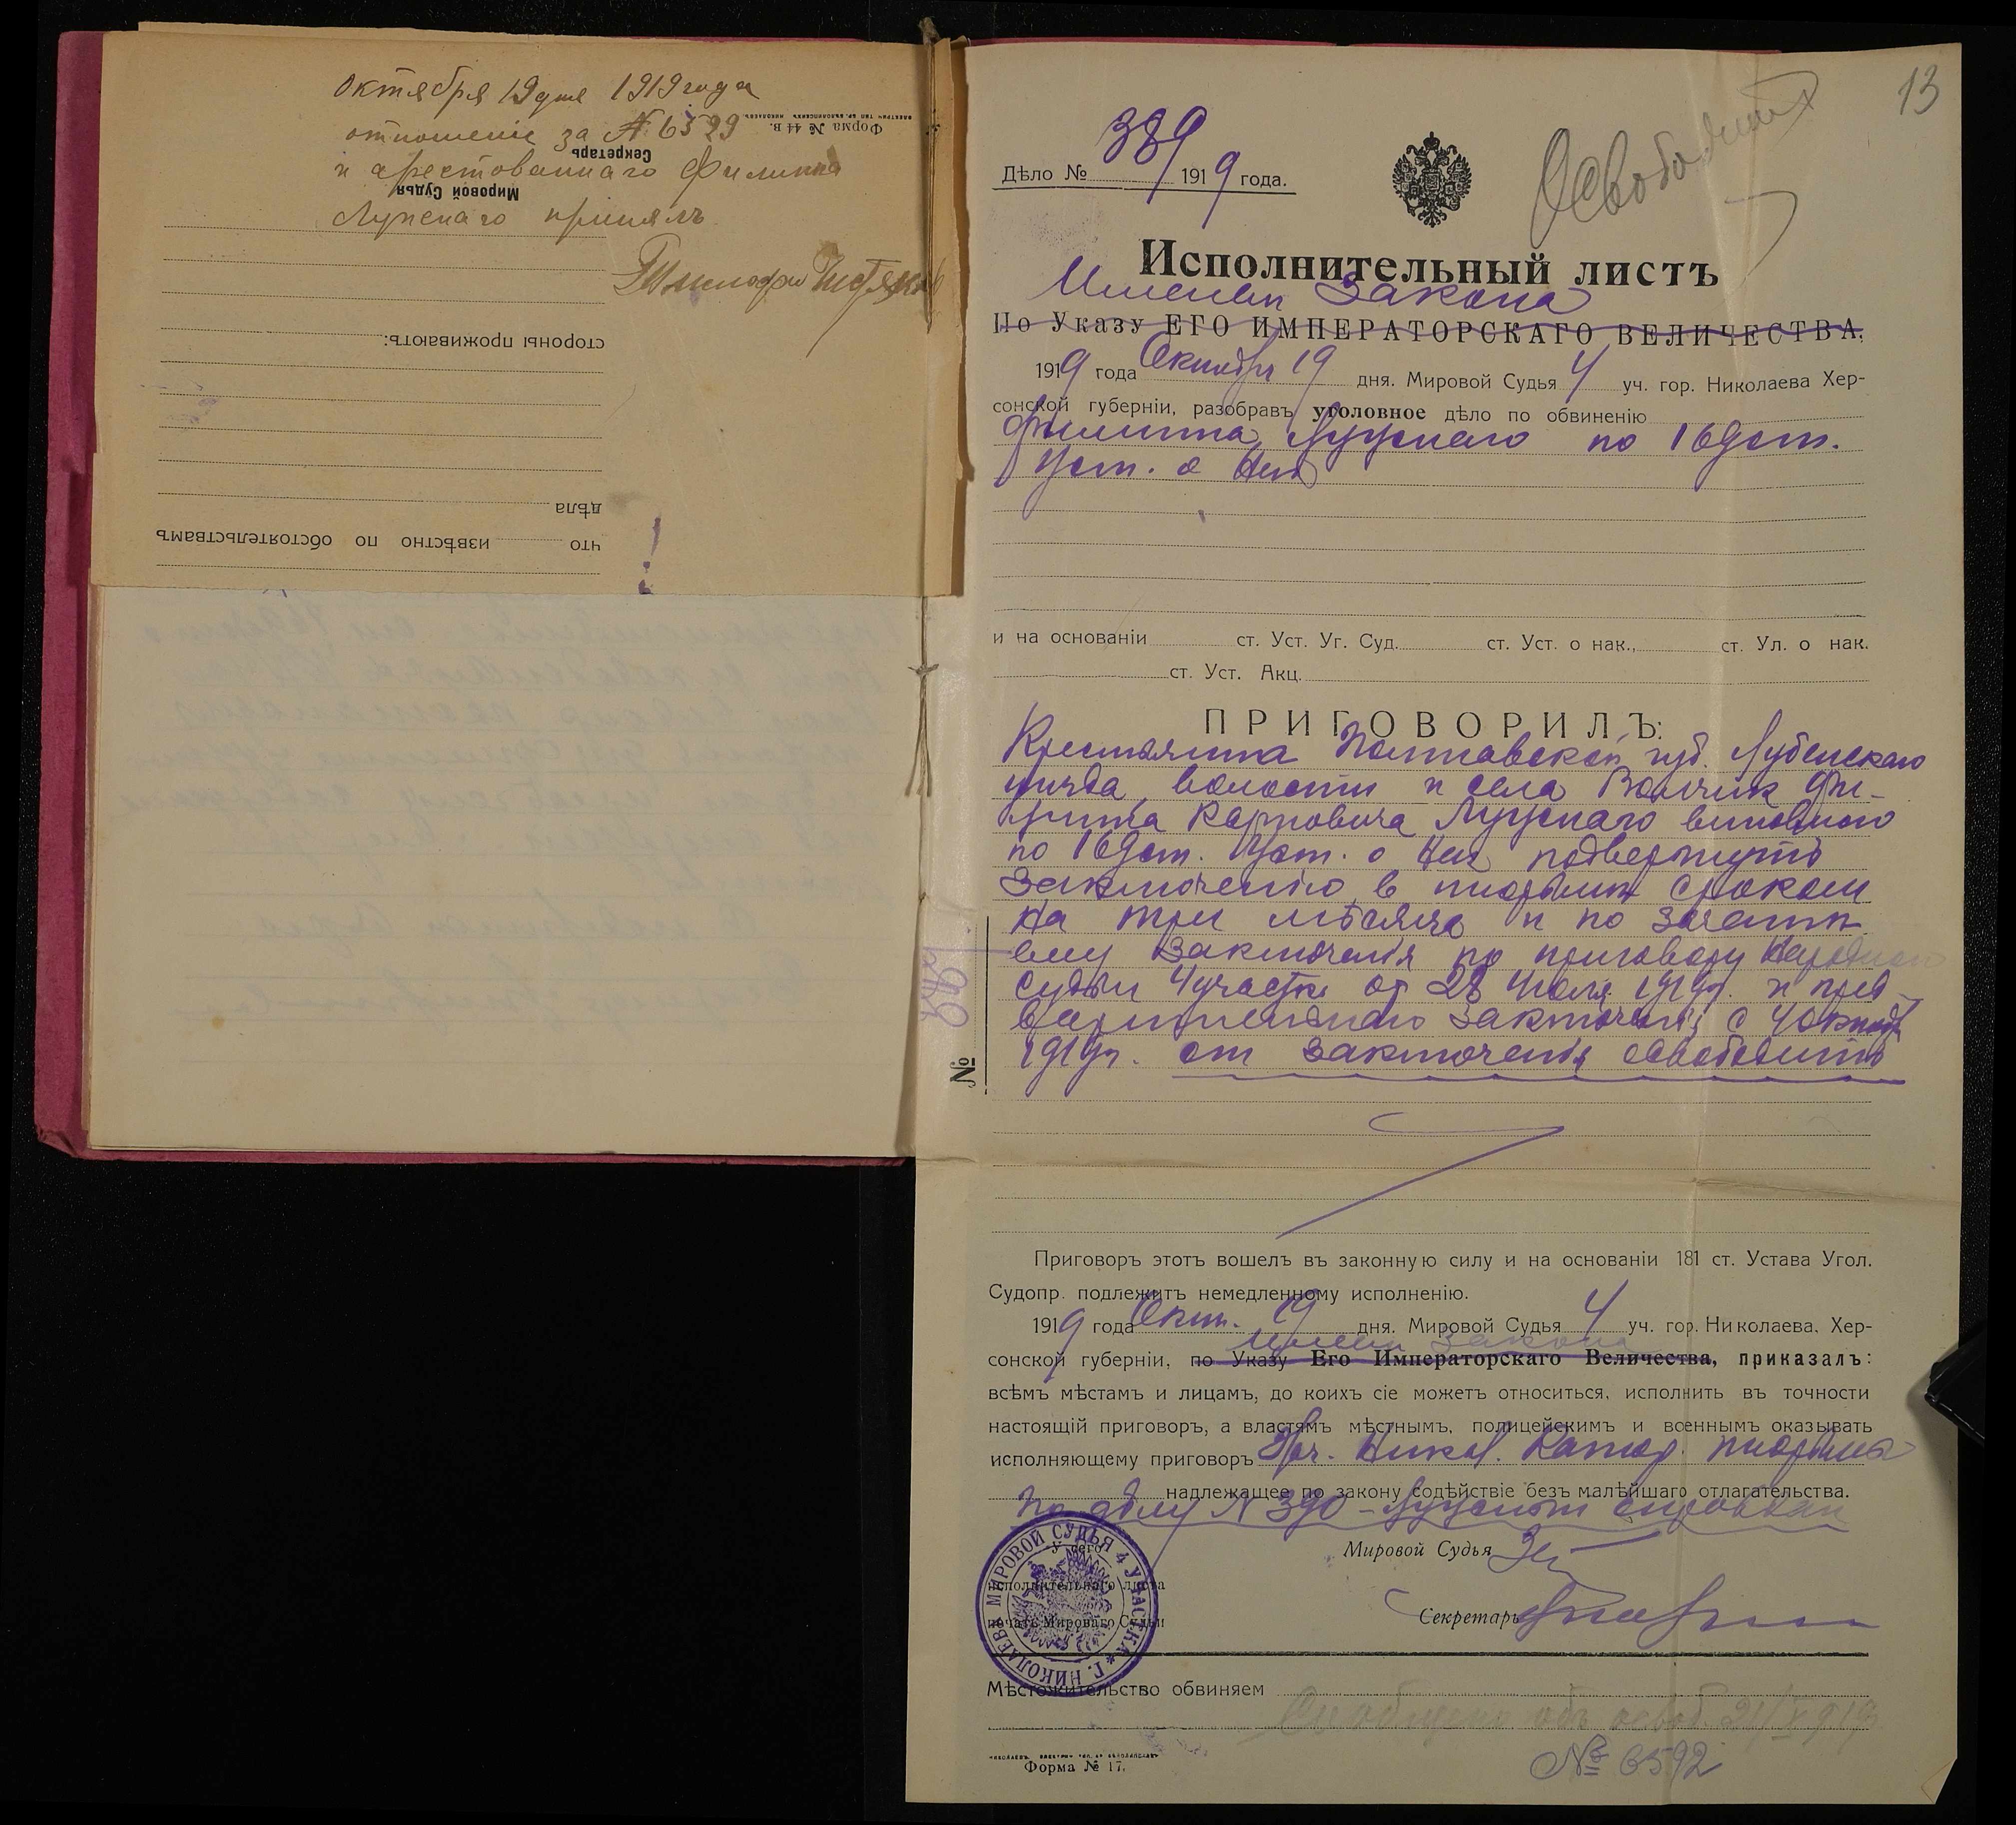 Октября 19 дня 1919 года
отношеніе за № 6529
и арестованнаго Филиппа
принялъ
Форма № 44 в.
Секретарь
Мировой Судья
стороны проживаютъ:
дѣла
что извѣстно по обстоятельствамъ
!
13
Освободить
Дѣло № 389 1919 года.
Исполнительный листъ
Именем Закона
По Указу ЕГО ИМПЕРАТОРСКАГО ВЕЛИЧЕСТВА,
1919 года Октября 19 дня. Мировой Судья 4 уч. гор. Николаева Хер-
сонской губерніи, разобравъ уголовное дѣло по обвиненію
Филиппа Луцснаго по 169 ст.
Уст. о Нак
и на основаніи ст. Уст. Уг. Суд. ст. Уст. о нак., ст. Ул. о нак.
ст. Уст. Акц.
ПРИГОВОРИЛЪ:
Крестьянина Полтавской губ. Лубенскаго
уѣзда, волости и села Волчик Фи-
липпа Карповича виновного
по 169 ст. Уст. о Нак подвергнуть
заключенію в тюрьмѣ сроком
на три мѣсяца и по зачетѣ
ему заключенія по приговору Народнаго
Судьи 4 участка от 28 Июля 1919 г. и пред-
варительнаго заключенія с 4 Октября
1919 г. от заключенія освободить
№ 389
Приговоръ этотъ вошелъ въ законную силу и на основаніи 181 ст. Устава Угол.
Судопр. подлежитъ немедленному исполненію.
1919 года Окт. 19 дня. Мировой Судья 4 уч. гор. Николаева. Хер-
Именем Закона
сонской губерніи, по Указу Его Императорскаго Величества, приказалъ:
всѣмъ мѣстамъ и лицамъ, до коихъ сіе можетъ относиться, исполнить въ точности
настоящій приговоръ, а властямъ мѣстнымъ, полицейскимъ и военнымъ оказывать
исполняющему приговоръ Нач. Никол. Катор. тюрьмы
надлежащее по закону содѣйствіе безъ малѣйшаго отлагательства.
По дѣлу № 390
У сего
исполнительнаго листа
печать Мироваго Судьи
МИРОВОЙ СУДЬЯ 4 УЧАСТКА * Г. НИКОЛАЕВА
Мировой Судья
Секретарь
Мѣстожительство обвиняем
Сообщено объ освоб. 21/X 919
№ 6592
Форма № 17.